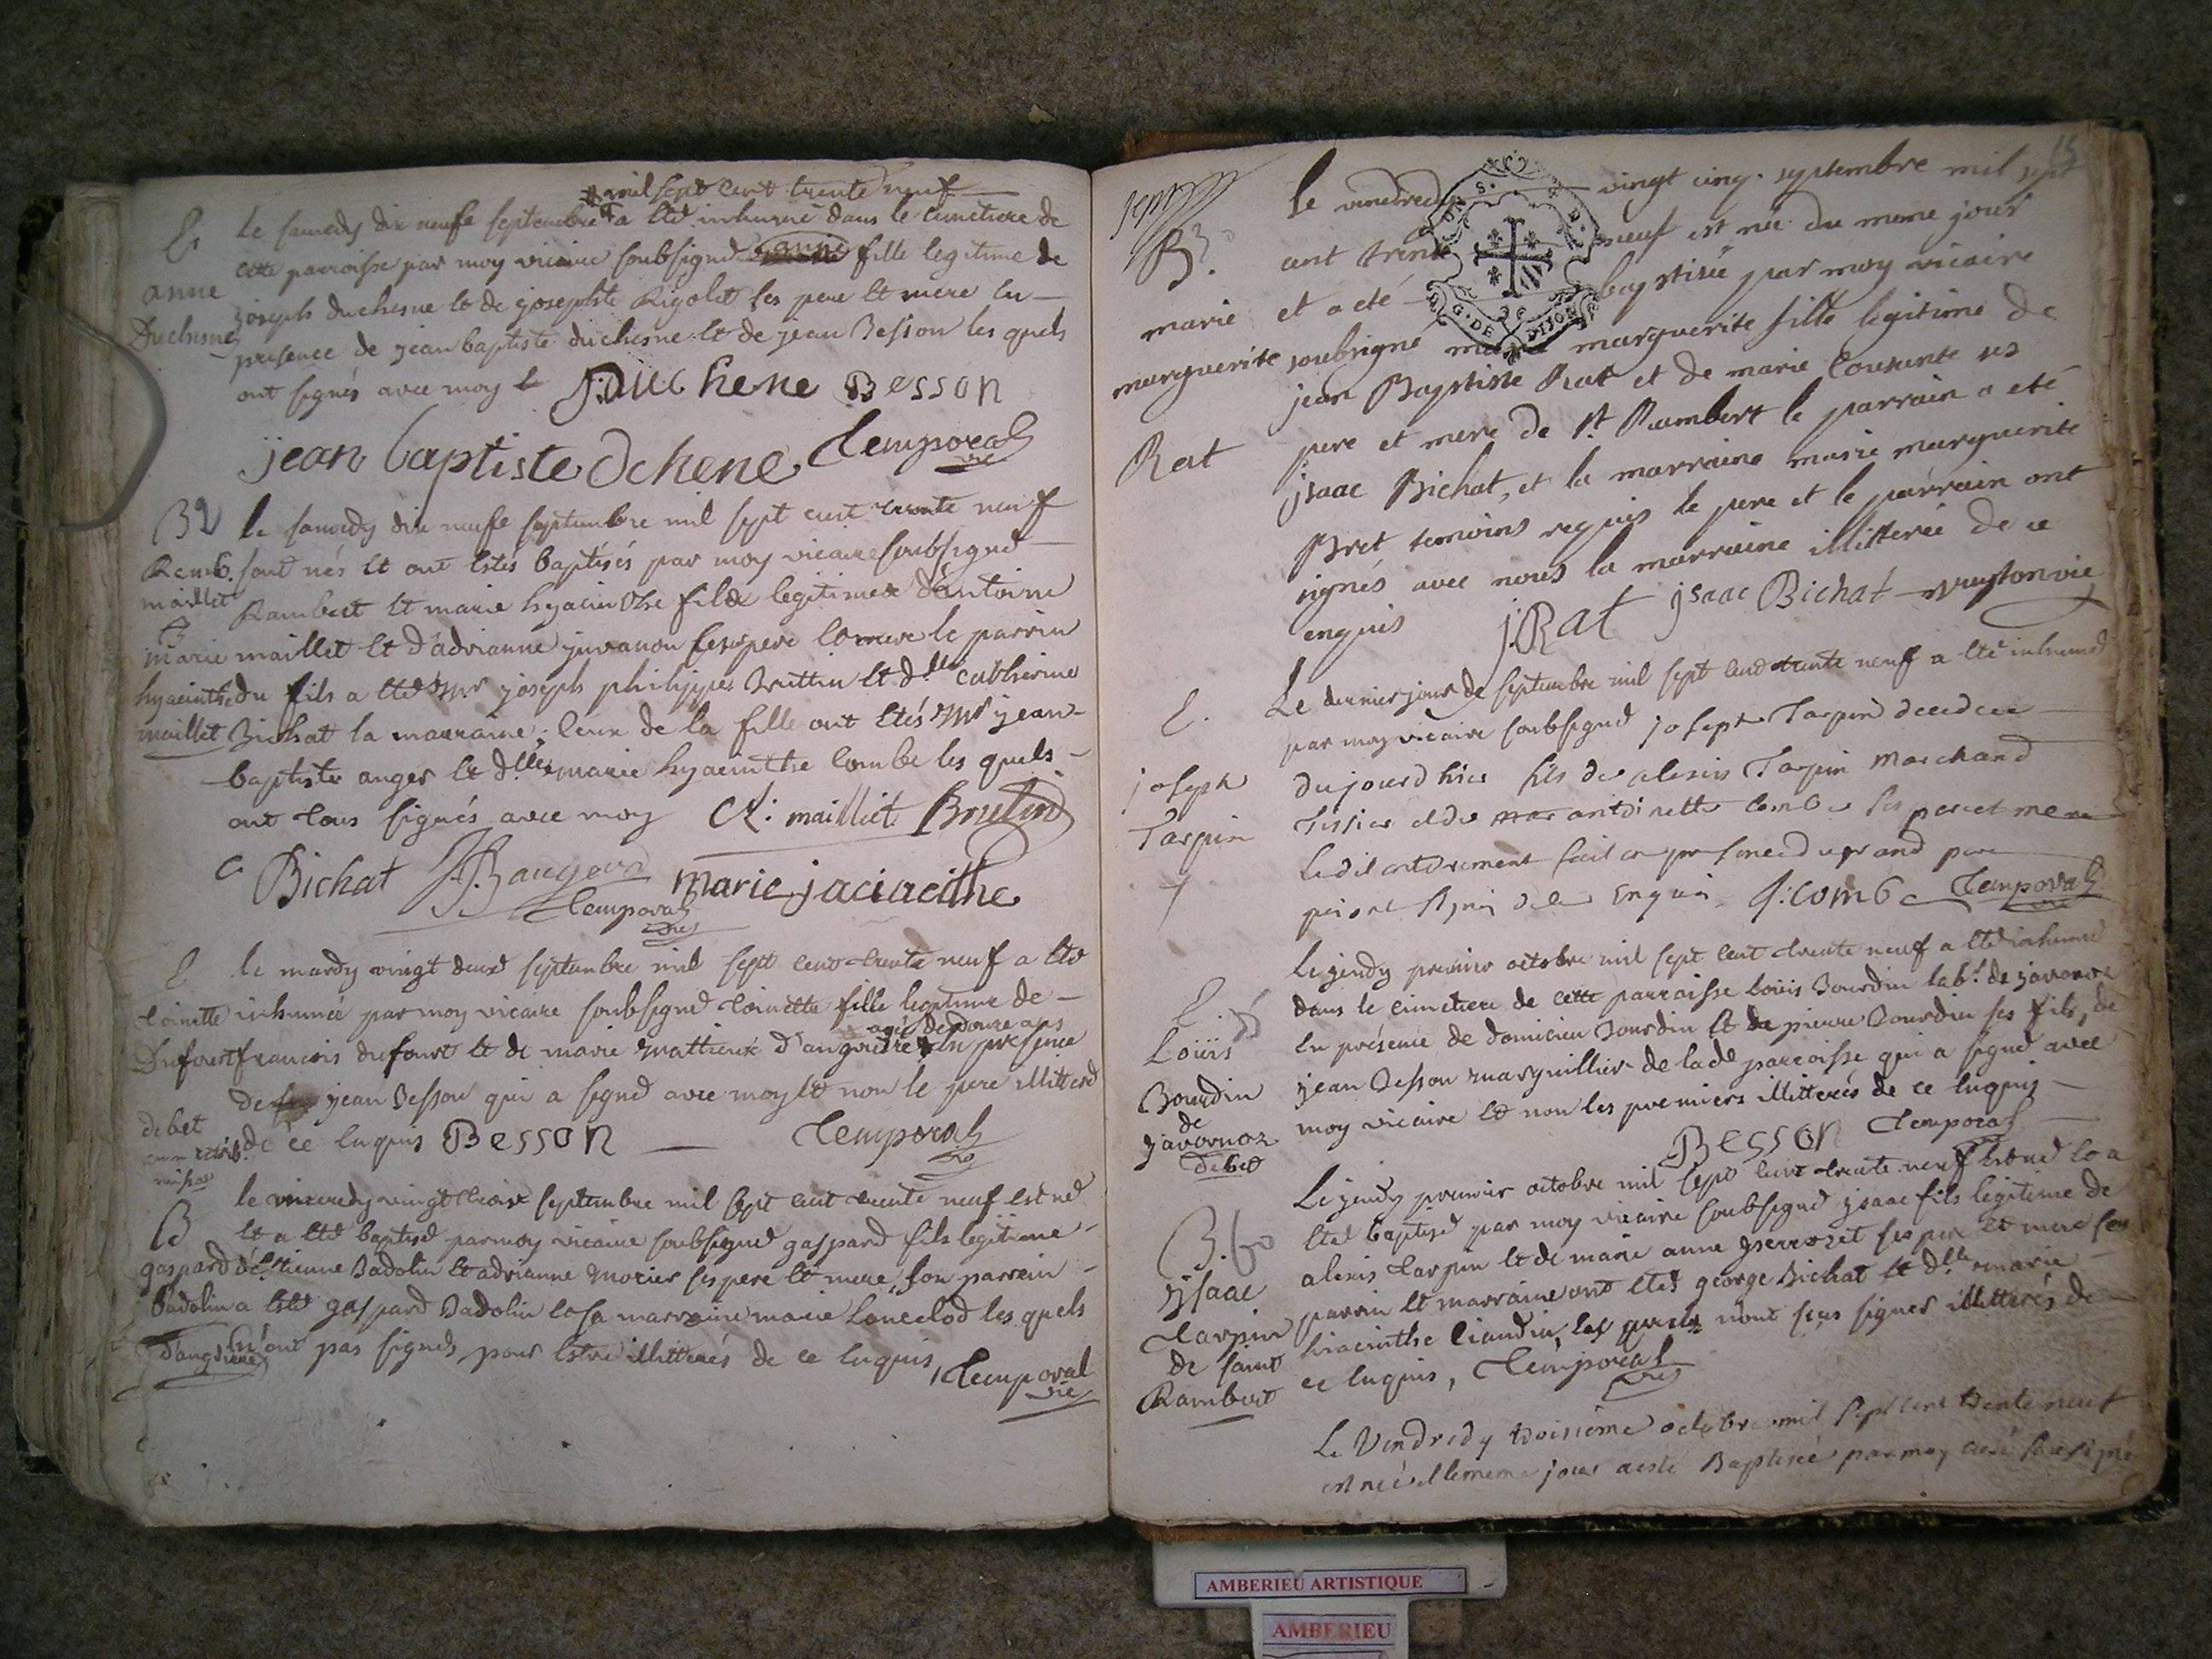 # mil sept cent trente neuf
E le samedy dix neufe septembre # a eté inhumé dans le cimetiere de
cette parroisse par moy vicaire soubsigné anne fille legitime de
anne
joseph duchesne et de josephte Rigolet ses pere et mere en
Duchesne
presence de jean baptiste duchesne et de jean Besson les quels
ont signés avec moy J: Duchene Besson
jean baptiste dchene Temporal vic
B le samedy dix neufe septembre mil sept cent trente neuf
Ramb. sont nés et ont estés baptisés par moy vicaire soubsigné
maillet Rambert et marie hyacinthe fils legitimes d'antoine
marie maillet et d'adrianne juvanon ses pere et mere le parrin
hyacinthe du fils a eté Mr joseph philippes Bruttin et dlle catherine
maillet Bichat la marraine; ceux de la fille ont étés Mr jean
baptiste anger et dlle marie hyacinthe Combe les quels
ont tous signés avec moy A: maillet Brutin
C Bichat marie jaciacithe
Temporal
E le mardy vingt deux septembre mil sept cent trente neuf a eté
toinette inhumée par moy vicaire soubsigné toinette fille legitime de
agé de douze ans
Dufour francois dufour et de marie mattieux d'angriere en presence
de jean Besson qui a signé avec moy et non le pere illitteré
debet
de ce enquis Besson Temporal
B le mercredy vingt trois septembre mil sept cent trente neuf est né
et a eté baptisé par moy vicaire soubsigné gaspard fils legitime
gaspard d'estienne Badolin et adrianne morier ses pere et mere, son parrain
badolin a esté gaspard Badolin et sa marraine marie lanceлod les quels
d'angrieres n'ont pas signés pour estre illitterés de ce enquis, Temporal
vic
15
le vendredy vingt cinq septembre mil sept
B. cent trente neuf est née du meme jour
marie et a eté baptisée par moy vicaire
marguerite soubsigné marie marguerite fille legitime de
jean Baptiste Rat et de marie Cousante ses
Rat pere et mere de St Rambert le parrain a eté
jsaac Bichat, et la marraine marie marguerite
Bret temoins requis le pere et le parrain ont
signés avec nous la marraine illitterée de ce
enquis j:Rat jsaac Bichat
E. Le dernier jour de septembre mil sept cent trente neuf a eté inhumé
par moy vicaire soubsigné joseph Tarpin decedee
joseph du jourd hier fils de alexis Tarpin marchand
Tarpin Tissier et de antoinette Combe ses pere et mere
Ledit enterement fait en presence du grand pere
enquis J: Comb Temporal
le jeudy premier octobre mil sept cent trente neuf a eté inhumé
E. dans le cimetiere de cette parroisse Loüis Bourdin labr. de javornoz
Loüis en présence de domicien Bourdin et de pierre Bourdin ses fils, de
Bourdin jean Besson marguillier de lade parroisse qui a signé avec
de moy vicaire et non les premiers illitterés de ce enquis
javornoz
debet
Besson Temporal
Le jeudy premier octobre mil sept cent trente neuf est né et a
B. eté baptisé par moy vicaire soubsigné jsaac fils legitime de
jsaac alexis Tarpin et de marie anne perrozet ses pere et mere son
Tarpin parrin et marraine ont etés george Bichat et dlle marie
de saint hiacinthe Ciandin, les quels n'ont sçus signer illitterés de
Rambert ce enquis, Temporal
vic
Le Vendredy troisieme octobre mil sept cent trente neuf
est née et le meme jour a esté Baptisée par moy curé soussigné
DIJON
AMBERIEU ARTISTIQUE
AMBERIEU